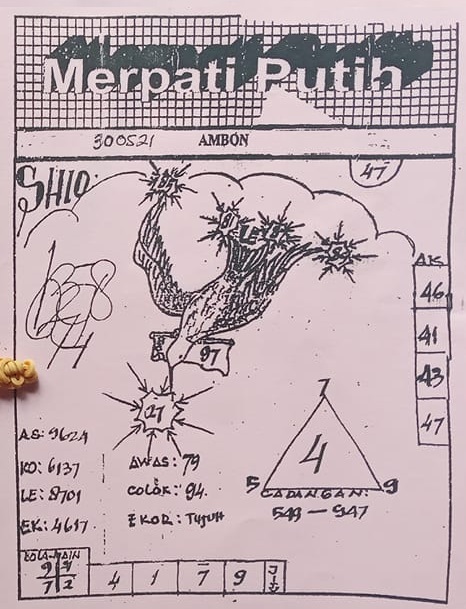 Merpati Putih
300521 AMBON
47
SHIO:
97
27
AK
46
41
43
47
7
4
5 9
CADANGAN:
549 - 947
AS: 9624
KO: 6137
LE: 8701
EK: 4617
AWAS: 79
COLOK: 94.
EKOR: TUJUH
BOLA-MAIN
9 7
7 2
4 1 7 9